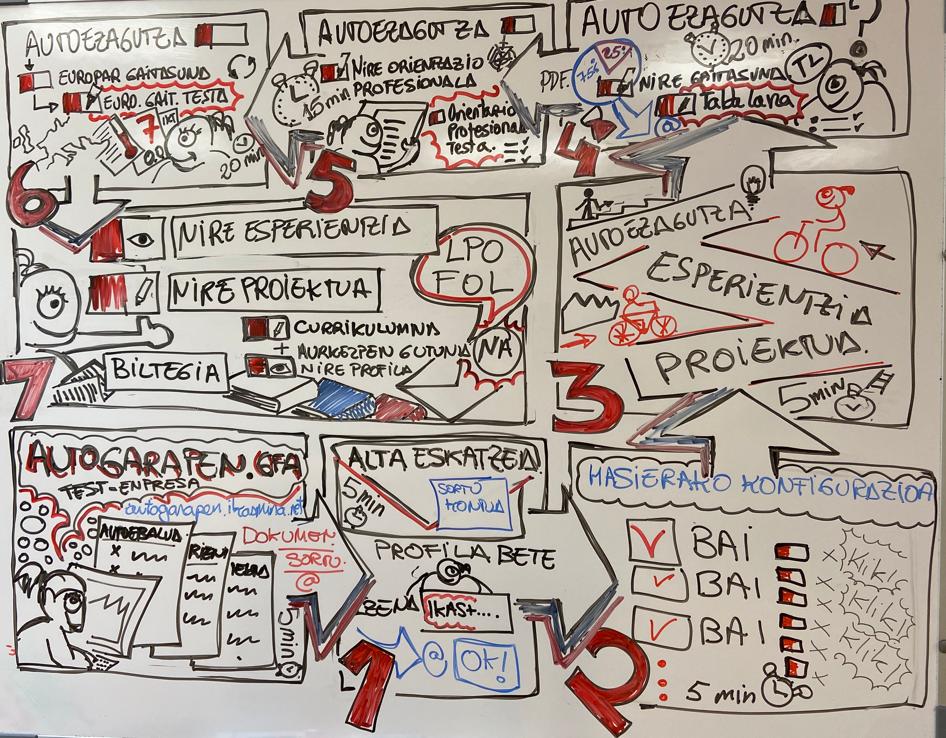 AUTOEZAGUTZA
EUROPAR GAITASUNA
EURO. GAIT. TESTA
7
20 min
AUTOEZAGUTZA
NIRE ORIENTAZIO
PROFESIONALA
15 min.
Orientazio
Profesional
Testa.
AUTOEZAGUTZA
20 min.
PDF.
75%
25%
NIRE GAITASUNA
Taba lana
@
TL
4
5
6
NIRE ESPERIENTZIA
NIRE PROIEKTUA
LPO
FOL
CURRIKULUMNA
+
AURKEZPEN GUTUNA
NIRE PROFILA
NA
BILTEGIA
7
AUTOEZAGUTZA
ESPERIENTZIA
PROIEKTUA.
5 min
3
AUTOGARAPEN.GFA
TEST-ENPRESA
autogarapen.ikasmina.net
AUTOEBALUA
DOKUMEN
SORTU.
@
ALTA ESKATZEA
5 min
SORTU
KONTUA
PROFILA BETE
IKAS+...
@ OK!
1
HASIERAKO KONFIGURAZIOA
BAI
BAI
BAI
x klikic
x klik
x klik!
x
x
5 min
2